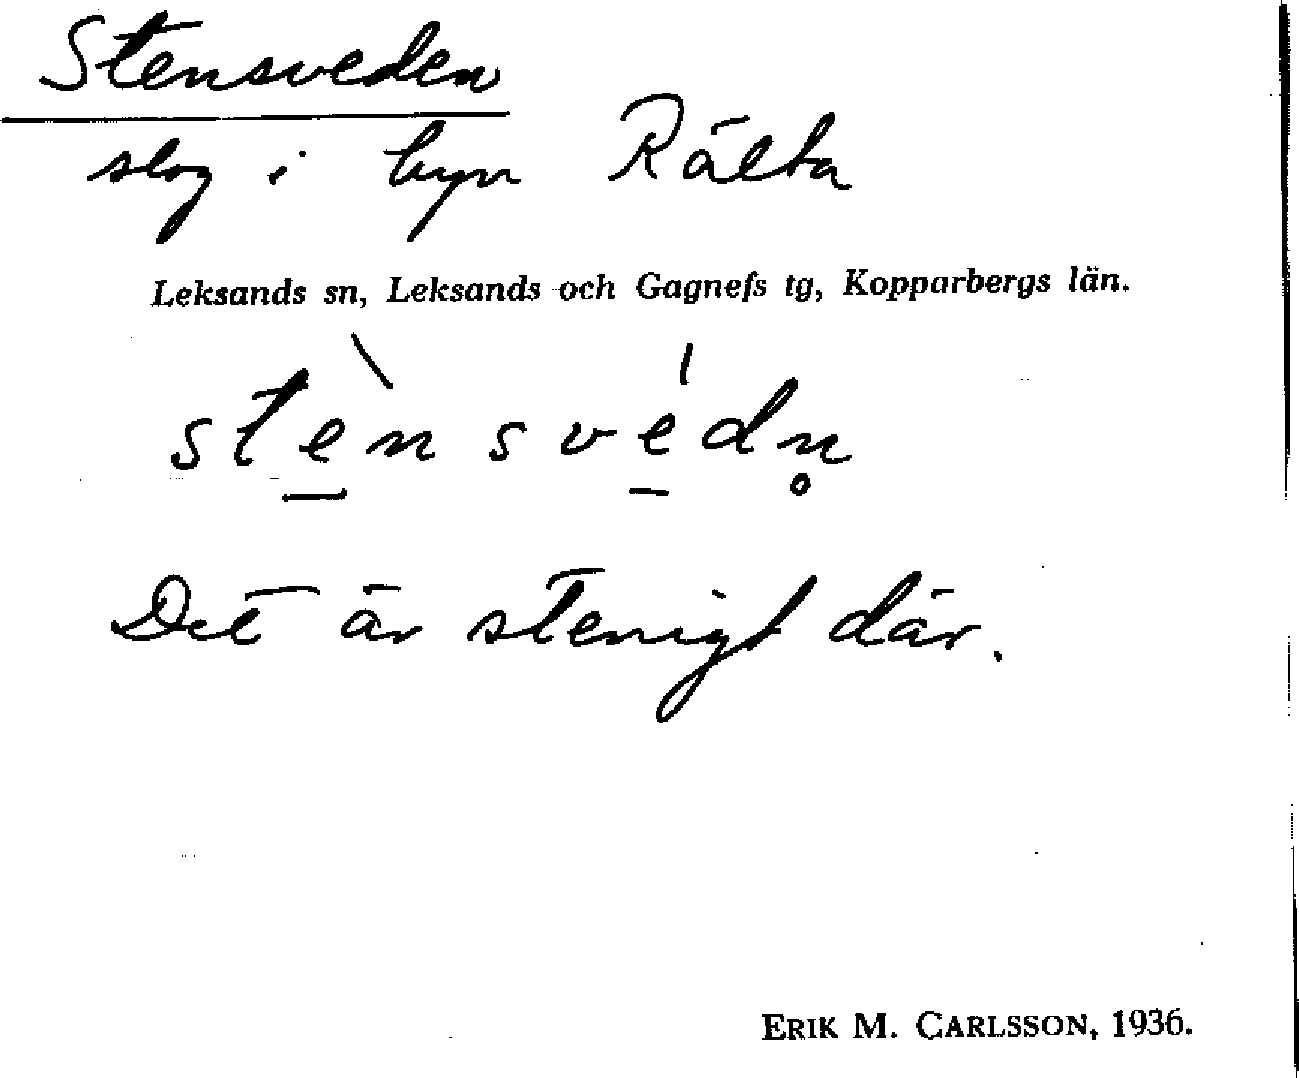 Stensveden
slog i byn Rälta
Leksands sn, Leksands och Gagnefs tg, Kopparbergs län.
stè̱nsvé̱dn̥
Det är stenigt där.
ERIK M. CARLSSON, 1936.